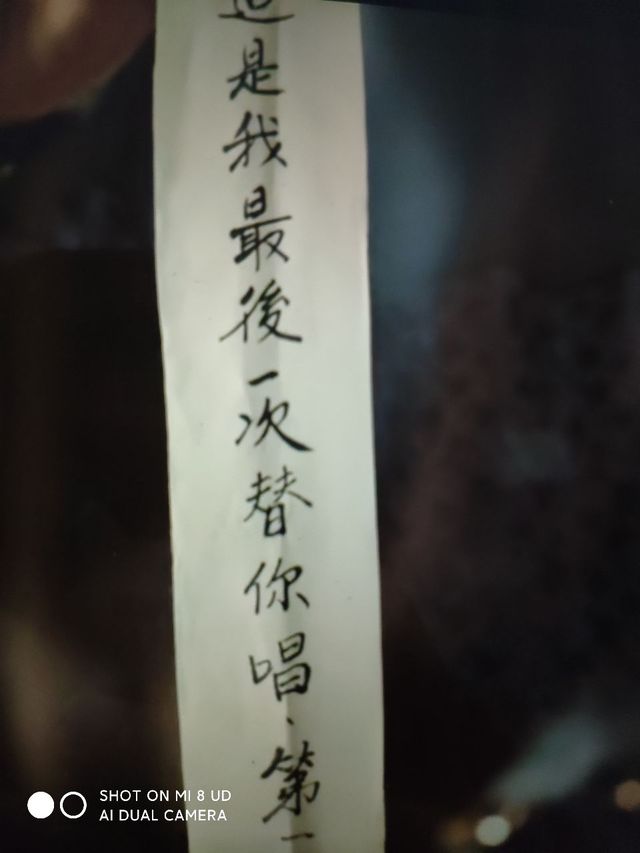 這是我最後一次替你唱、第一
SHOT ON MI 8 UD
AI DUAL CAMERA